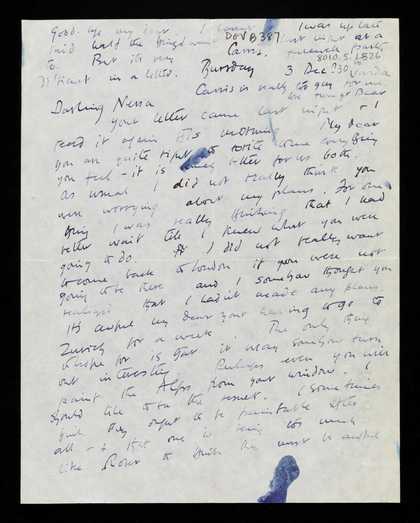 Good-bye my dear. I
said half the things I was up late
to. But it's very last night at a
difficult in a letter. Cassis, French Party
DOV B 387
8010.5.1526
Thursday 3 Dec '30
Cassis is really too gay for me
Darling Nessa
your letter came last night & I
read it again this morning. My dear
you are quite right to write everything
you feel - it is much better for us both.
as usual I did not really think you
were worrying about my plans. For one
thing I was really thinking that I had
better wait till I knew what you were
going to do. I did not really want
to come back to London if you were not
going to be there and I somehow thought you
realised that I hadn't made any plans.
It's awful my dear your having to go to
Zurich for a week. The only thing
to hope for is that it may somehow turn
out interesting. Perhaps even you will
paint the Alps from your window. I
should like to see the result. I sometimes
think they ought to be paintable after
all - & that one is being too much
like Roger to think they must be awful